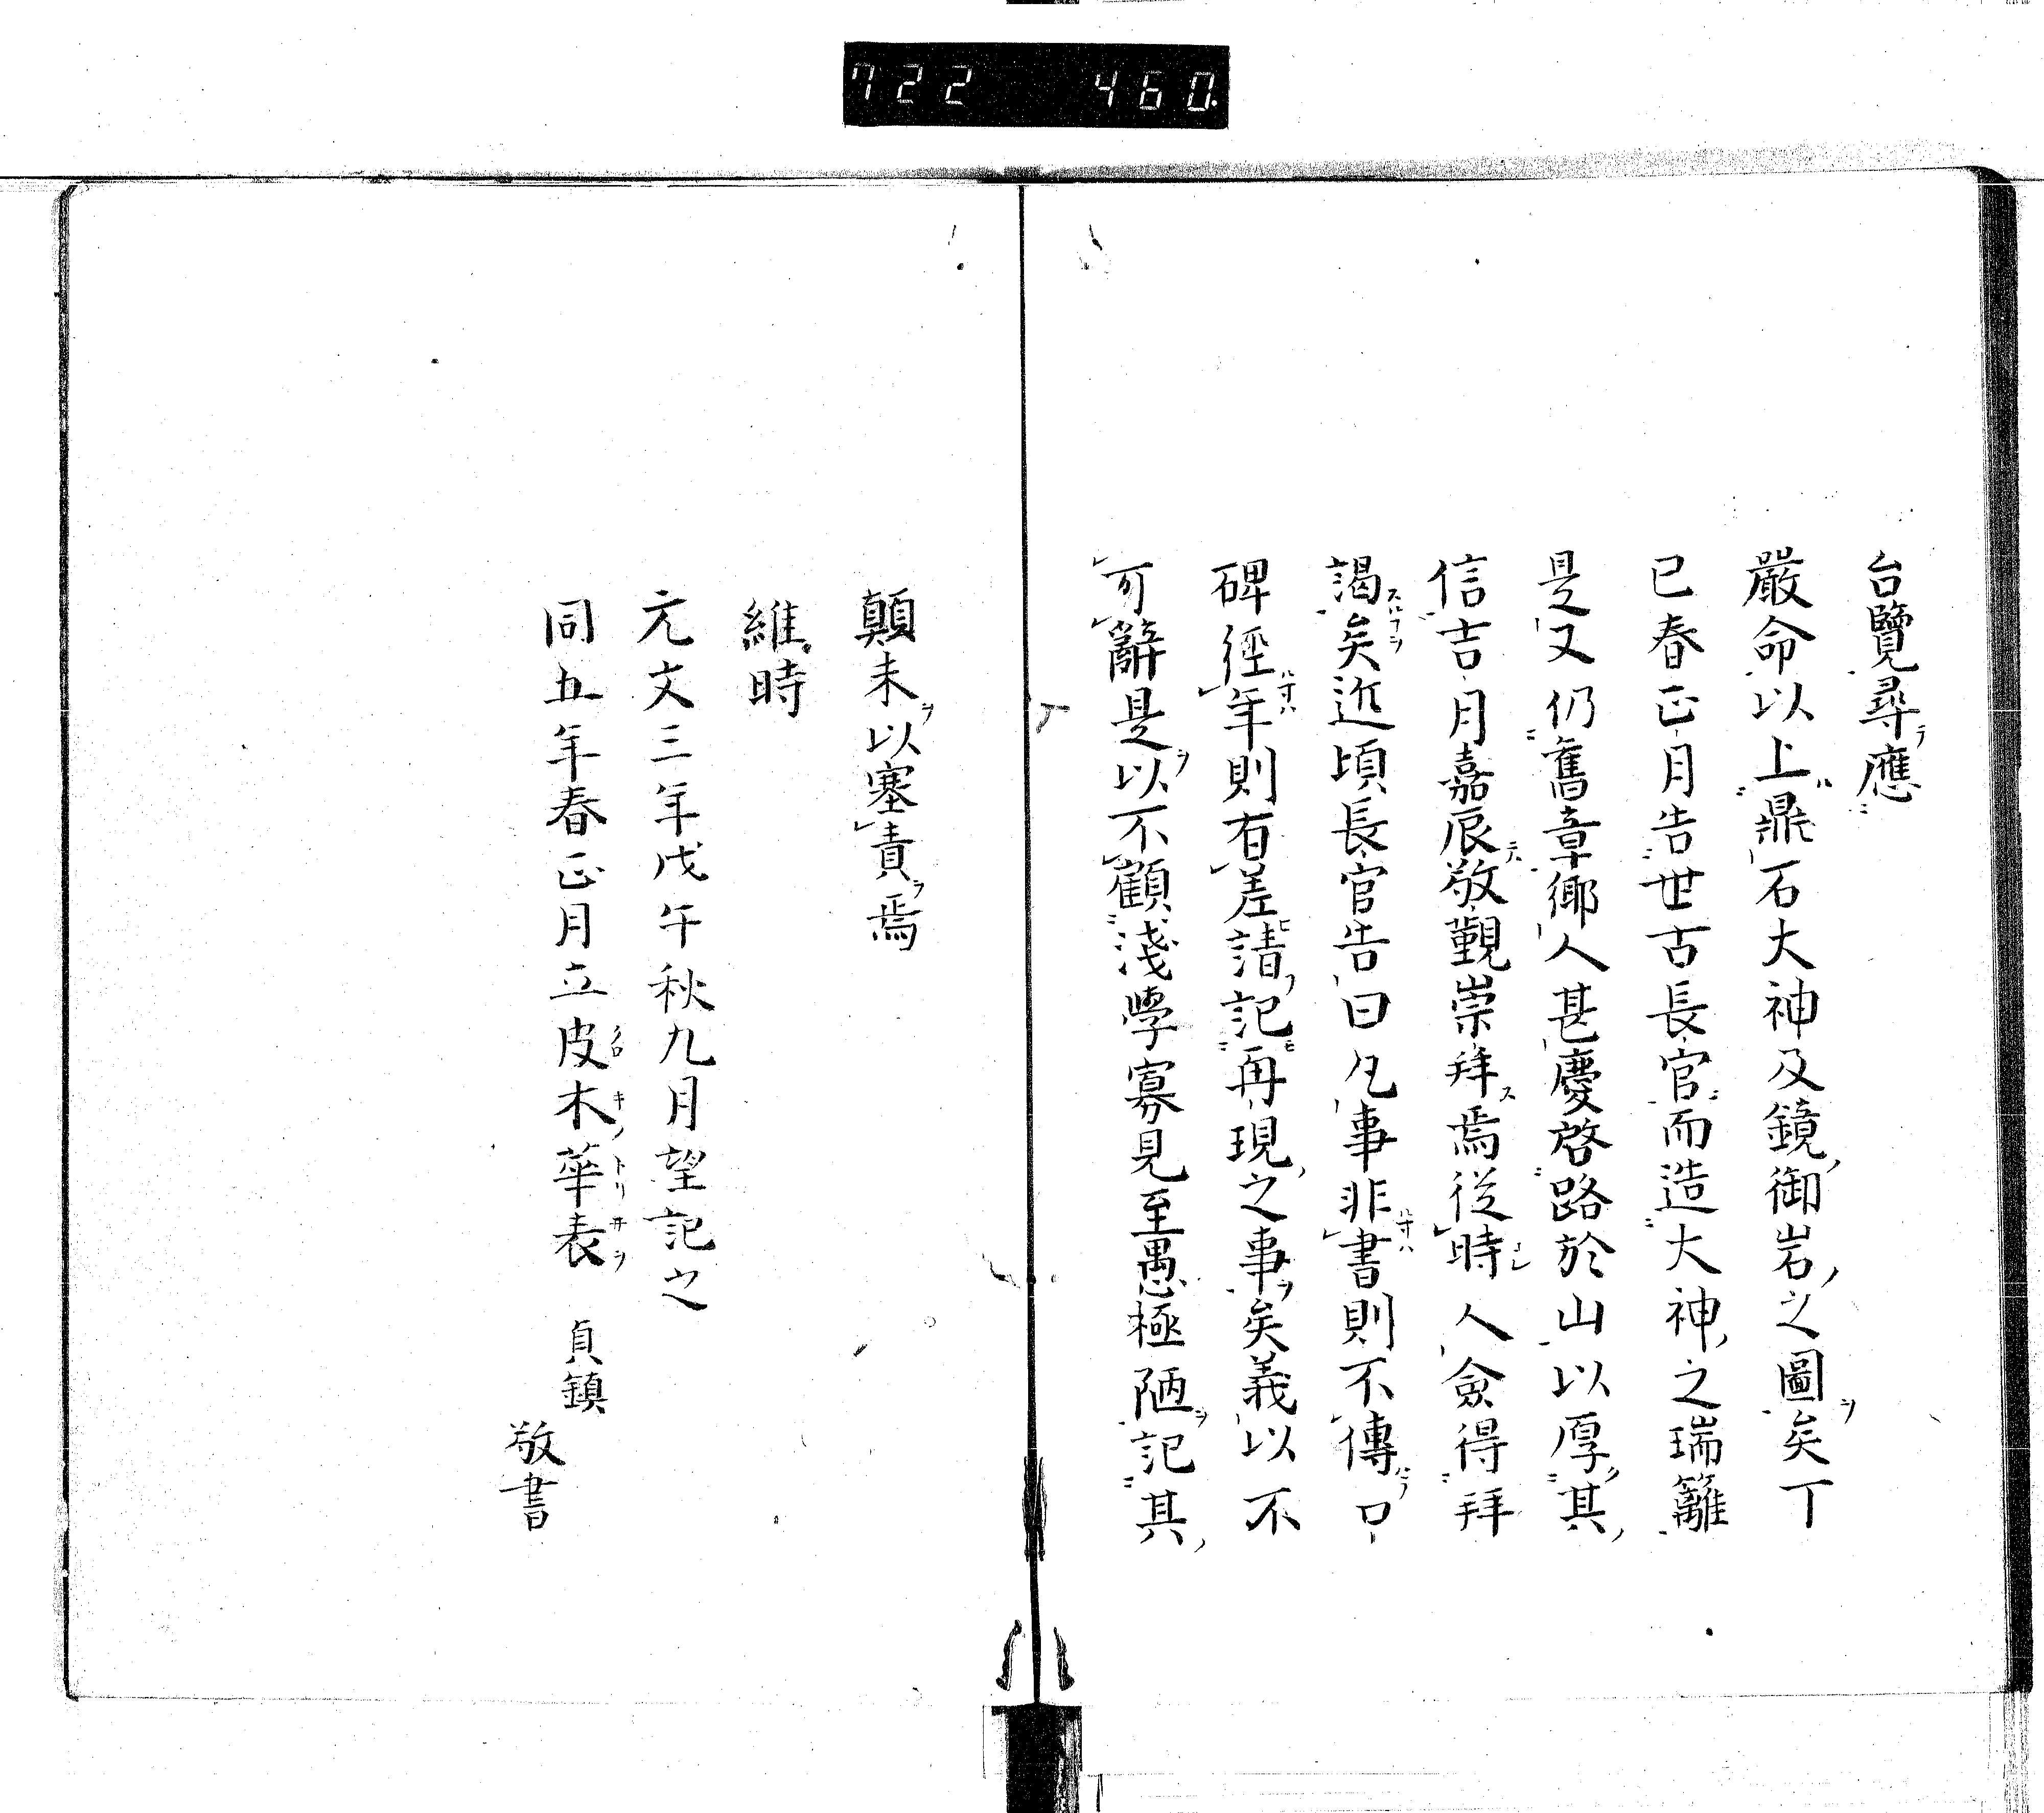 722 460.
台覽尋應
嚴命以上鼎石大神及鏡御岩之圖矣丁
巳春正月告世古長官而造大神之瑞籬
是又仍舊章鄉人甚慶啓路於山以厚其
信吉月嘉辰敬覲崇拜焉従時人僉得拜
謁矣近頃長官告曰凡事非書則不傳口
碑徑年則有差請記再現之事矣義以不
可辭是以不顧淺學寡見至愚極陋記其
顛末以塞責焉
維時
元文三年戊午秋九月望記之
同五年春正月立皮木華表 貞鎮
敬書